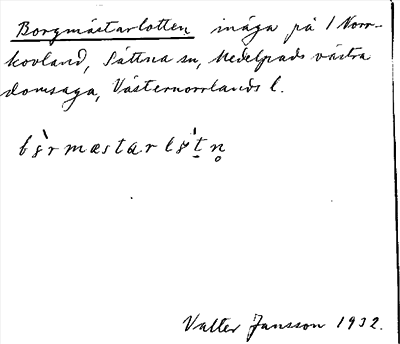 Borgmästarlotten inäga på 1 Norr-
kovland, Sättna sn, Medelpads västra
domsaga, Västernorrlands l.
Valter Jansson 1932.